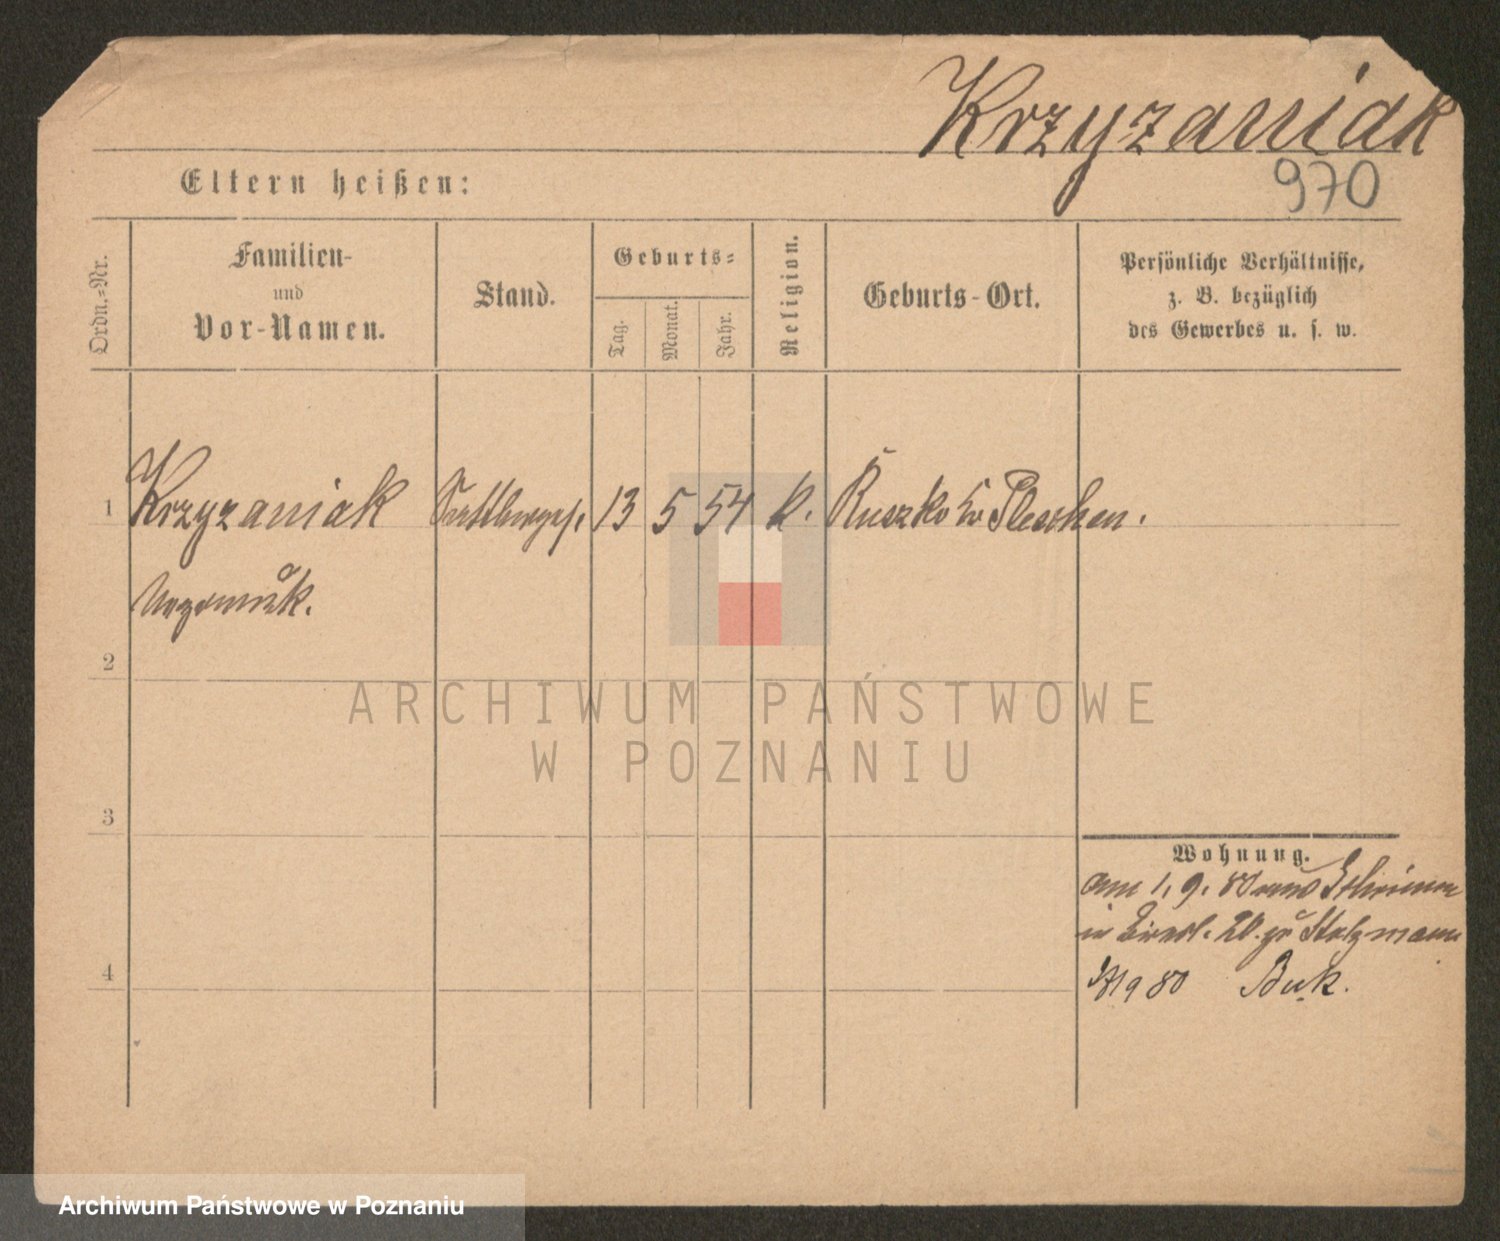 Krzyzaniak
970
Eltern heißen:
Ordn.=Nr.
Familien-
und
Vor-Namen.
Stand.
Geburts=
Tag.
Monat.
Jahr.
Religion.
Geburts-Ort.
Persönliche Verhältnisse,
z. B. bezüglich
des Gewerbes u. s. w.
1 Krzyzaniak 13 5 54 k. Ruszko Pleschen.
2
3
4
Wohnung.
am 1. 9. 80 aus
in 20. zu Stolzmann
9 80 Buk.
ARCHIWUM PAŃSTWOWE
W POZNANIU
Archiwum Państwowe w Poznaniu